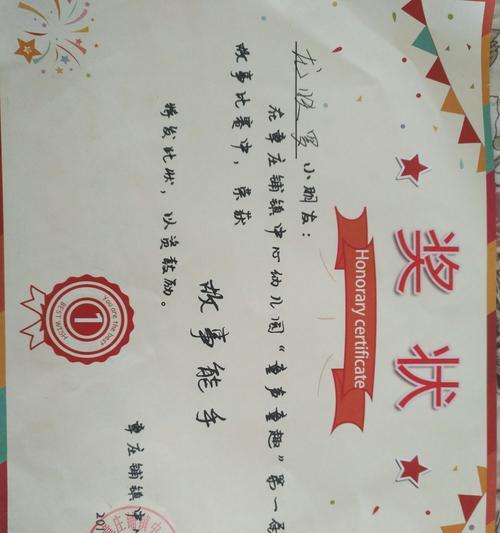 奖 状
Honorary certificate
小朋友：
在章庄铺镇中心幼儿园“童声童趣”第一届
故事比赛中，荣获
故事能手
将发此状，以资鼓励。
You are the best
1
BEST WISH
章庄铺镇中
201